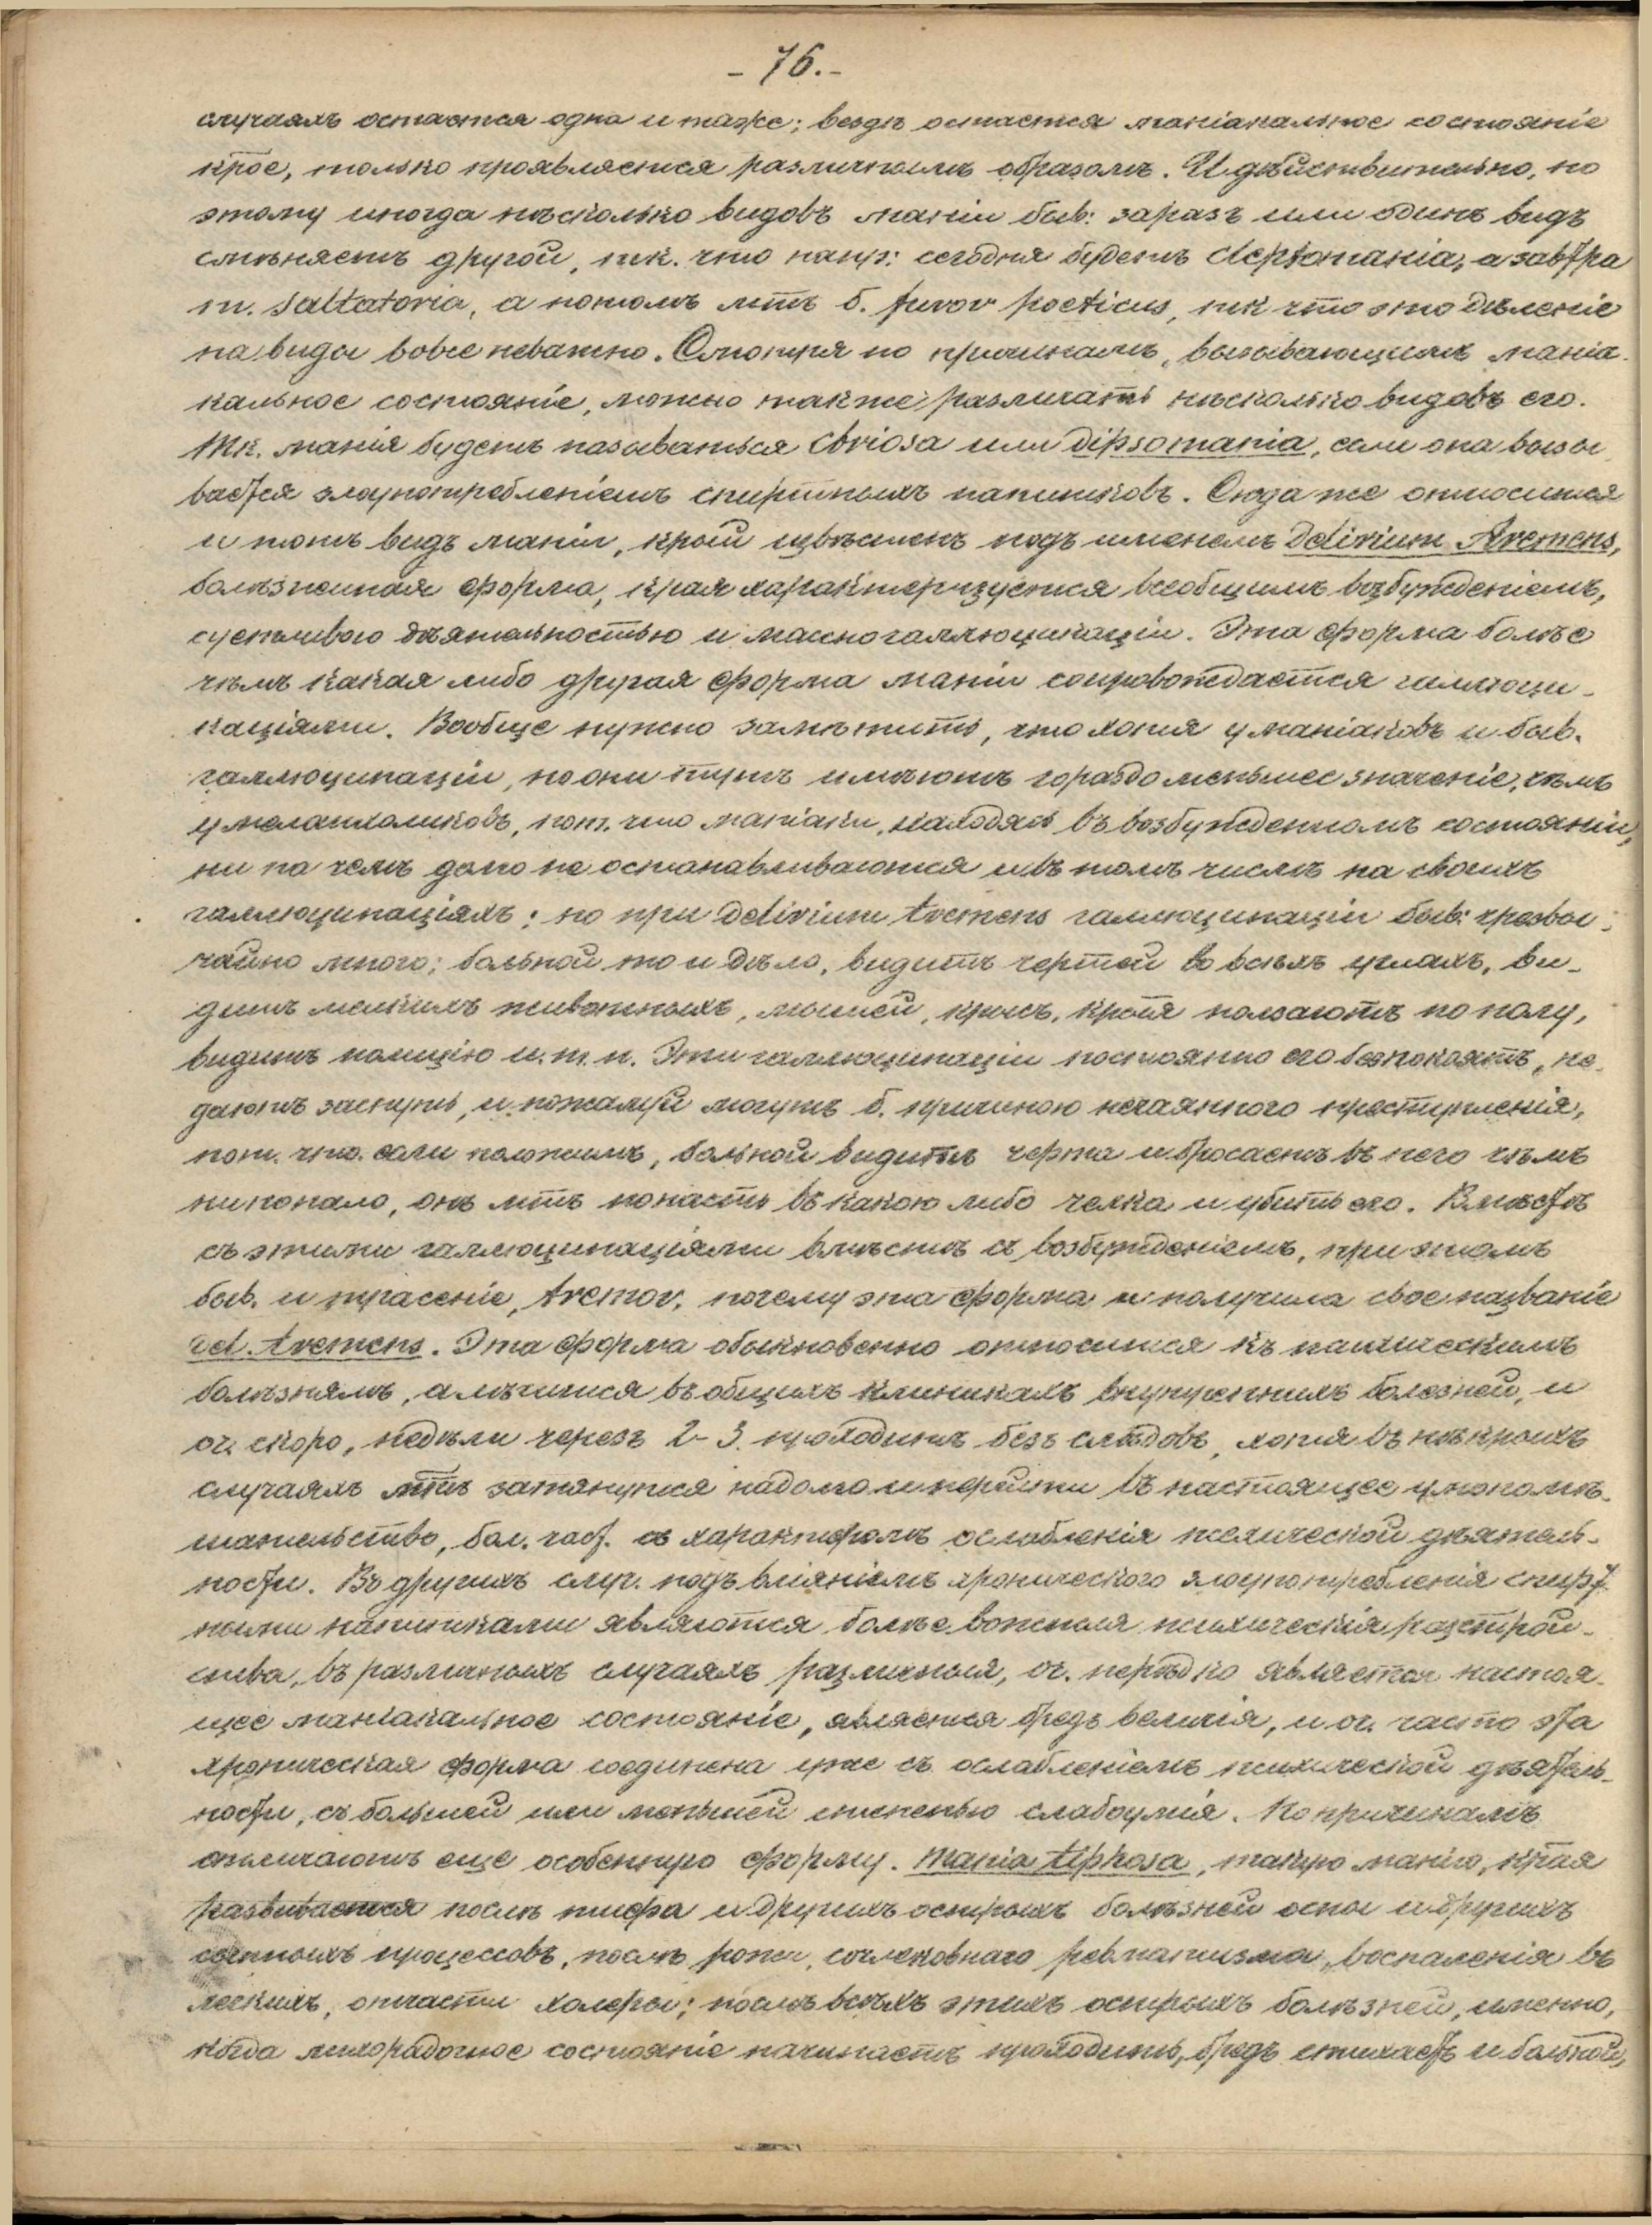 - 76. -
случаяхъ остается одна и таже; вездѣ остается маніакальное состояніе
крое, только проявляется различнымъ образомъ. И дѣйствительно, по
этому иногда нѣсколько видовъ маніи быв: заразъ или одинъ видъ
смѣняетъ другой, тк. что напр: сегодня будетъ cleptomania, а завтра
m. saltatoria, а потомъ мтъ б. furor poeticus, тк что это дѣленіе
на виды вовсе неважно. Смотря по причинамъ, вызывающимъ маніа-
кальное состояніе, можно также различать нѣсколько видовъ его.
Тк. манія будетъ называться ebriosa или dipsomania, если она вызы
вается злоупотребленіемъ спиртныхъ напитковъ. Сюда же относится
и тотъ видъ маніи, крый извѣстенъ подъ именемъ Delirium tremens,
болѣзненная форма, края характеризуется всеобщимъ возбужденіемъ,
суетливою дѣятельностью и массю галлюцинаціи. Эта форма болѣе
чѣмъ какая либо другая форма маніи сопровождается галлюци-
націями. Вообще нужно замѣтить, что хотя у маніаковъ и быв.
галлюцинаціи, но они тутъ имѣютъ гораздо меньшее значеніе, чѣмъ
у меланхоликовъ, пот. что маніаки, находясь въ возбужденномъ состояніи,
ни на чемъ долго не останавливаются и въ томъ числѣ на своихъ
галлюцинаціяхъ; но при delirium tremens галлюцинаціи быв: чрезвы-
чайно много; больной то и дѣло, видитъ чертей во всѣхъ углахъ, ви-
дитъ мелкихъ животныхъ, мышей, крысъ, крыя ползаютъ по полу,
видитъ полицію и. т. п. Эти галлюцинаціи постоянно его безпокоятъ, не
даютъ заснуть, и пожалуй могутъ б. причиною нечаяннаго преступленія,
пот. что. если положимъ, больной видитъ черта и бросаетъ въ него чѣмъ
ни попало, онъ мтъ попасть въ какого либо челка и убить его. Вмѣстѣ
съ этими галлюцинаціями вмѣстѣ съ возбужденіемъ, при этомъ
быв. и трясеніе, tremor, почему эта форма и получила свое названіе
del. tremens. Эта форма обыкновенно относится къ психическимъ
болѣзнямъ, а лѣчится въ общихъ клиникахъ внутреннихъ болезней, и
оч. скоро, недѣли черезъ 2-3. проходитъ безъ слѣдовъ, хотя въ нѣкрыхъ
случаяхъ мтъ затянутся надолго и перейти въ настоящее умопомѣ-
шательство, бол. част. съ характеромъ ослабленія психической дѣятель-
ности. Въ другихъ случ. подъ вліяніемъ хроническаго злоупотребленія спирт-
ными напитками являются болѣе важныя психическія разстрой-
ства, въ различныхъ случаяхъ различныя, оч. нерѣдко является настоя-
щее маніакальное состояніе, является бредъ величія, и оч. часто эта
хроническая форма соединена уже съ ослабленіемъ психической дѣятель-
ности, съ большей или меньшей степенью слабоумія. По причинамъ
отличаютъ еще особенную форму. Mania tiphosa, такую манію, края
развивается послѣ тифа и другихъ острыхъ болѣзней оспы и другихъ
сыпныхъ процессовъ, послѣ рожи, сочленовнаго ревматизма, воспаленія въ
легкихъ, отчасти холеры; послѣ всѣхъ этихъ острыхъ болѣзней, именно,
когда лихорадочное состояніе начинаетъ проходить, бредъ стихаетъ и больной,